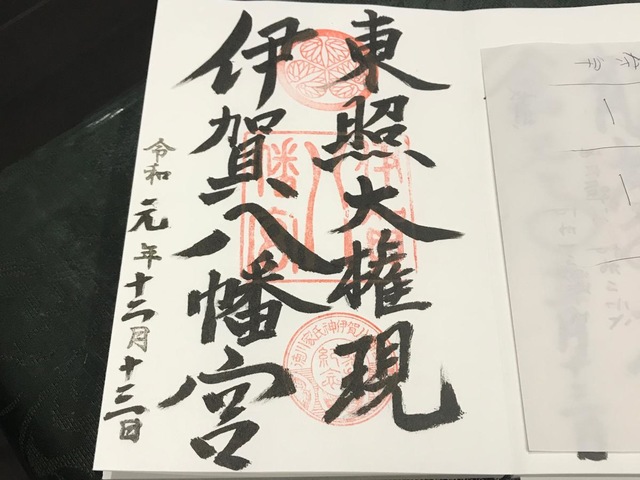 東照大権現
伊賀八幡宮
令和元年十二月十三日